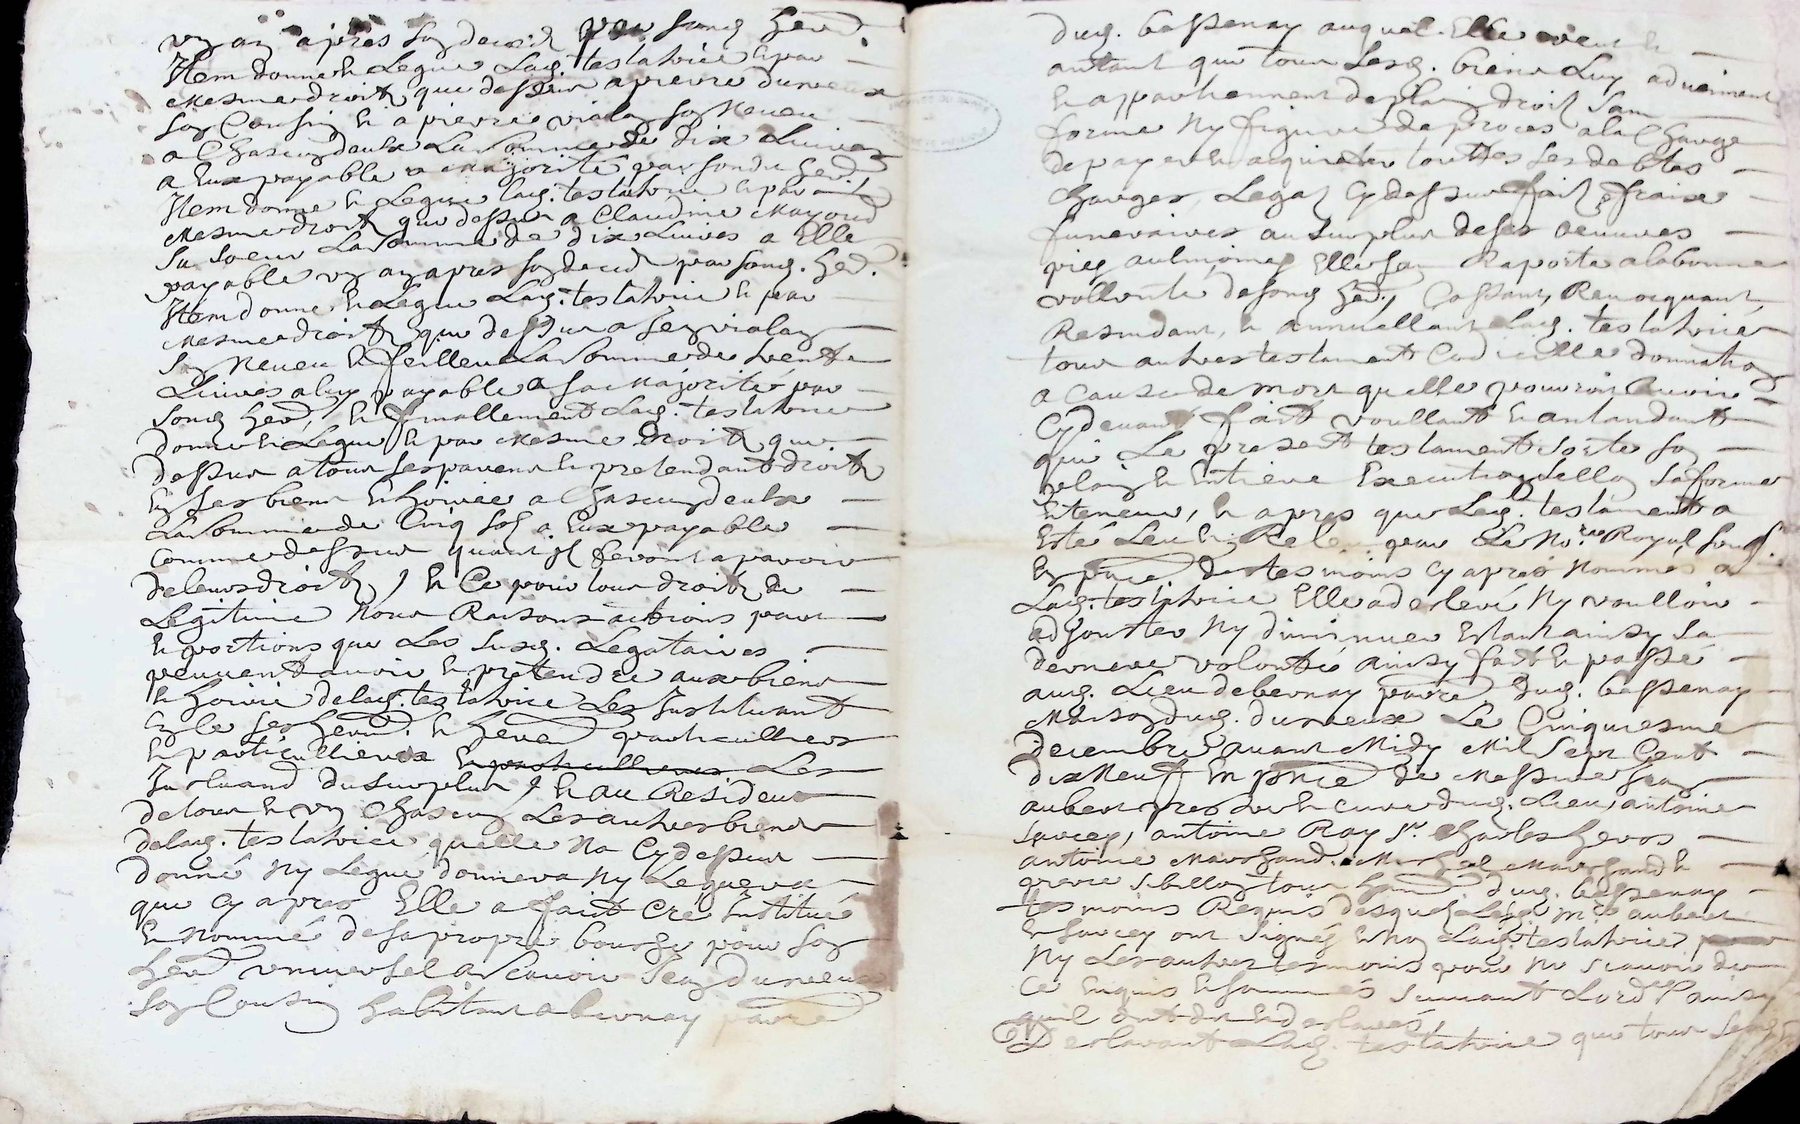 un an apres son deced par sond. herit.
Item donne et Legue Lad. testatrice et par
mesme droit que dessus a pierre durieux
son Cousin et a pierre vialon son Neveu
a Chascun deulx La Somme de dix Livres
a Eux payable a Majorité par sondit herit.
Item donne et Legue lad. testatrice et par
mesme droit que dessus a Claudine Mayoud
Sa Soeur La somme de dix Livres a Elle
payable un an apres son deced par sond. herit.
Item donne et Legue Lad. testatrice et par
mesme droit que dessus a Jean vialon
son Neveu et feilleul La Somme de trente
Livres a luy payable a sa Majorité par
sond herit, et finallement Lad. testatrice
donne et Legue et par mesme droit que
dessus a tous ses parens et pretendant droit
en ses biens et hoirie a Chascun deulx
La Somme de Cinq sols a Eux payable
comme dessus quant Il seront aparoir
de leurs droit, et Ce pour tous droit de
Legitime Noms Raisons actions pars
et portions que Les susd. Legataires
peuvent avoir et pretendre aux biens
et hoirie de lad. testatrice Les Instituant
et particulliers Les
Instituant du surplus, et au Residu
de tous et un Chascun Les autres biens
de lad. testatrice quelle Na Cy dessus
donné Ny Legué donnera Ny Leguera
que Cy apres Elle a fait Cré Institué
et Nommé de sa propre bouche pour son
herit. universel a scavoir Jean durieux
son Cousin habitant a bernay parre
dud. bessenay auquel Elle veut et
antant que tous Lesd. biens Luy adviennent
et appartiennent de plain droit sans
forme Ny figure de proces a la Charge
de payer et acquiter touttes ses debtes
charges, Legat Cy dessus fait, fraix
funeraires au surplus de ses oeuvres
pies aulmones Elle san Raporte a la bonne
vollonté de sond herit., Cassant, Revocquant,
Resindant, et annullant Lad. testatrice
tous autres testament Codicille donnation
a Cause de mort quelle pourroit avoir
Cy devant fait voullant et antandant
que Le present testament sorte son
plain et Entiere Execution sellon sa forme
et teneur, et apres que Led. testament a
Esté Leu et Releu par Le No.re Royal sousg.
En pnce des tesmoins Cy apres Nommés a
Lad. testatrice Elle a declaré Ny voulloir
adjouster Ny diminuer Estant ainsy sa
derniere volonté ainsy fait et passé
aud. Lieu de bernay parre dud. bessenay
Maison dud. durieux Le Cinquiesme
decembre avant Midy Mil sept Cent
dix Neuf En pnce de Messire Jean
aubert prestre et curé dud. Lieu, antoine
sarcey, antoine Ray Sr. Charles heros
antoine Marchand. Michel Marchand et
pierre sibillon tous hants dud. bessenay
tesmoins Requis desquels Led. Mre aubert
et sarcey ont signés et Non Lad. testatrice
Ny Les autres tesmoins pour Ne scavoir de
Ce Enquis et sommés suivant Lord.ce ainsy
quil ont dit et declarés,
Declarant Lad. testatrice que tous